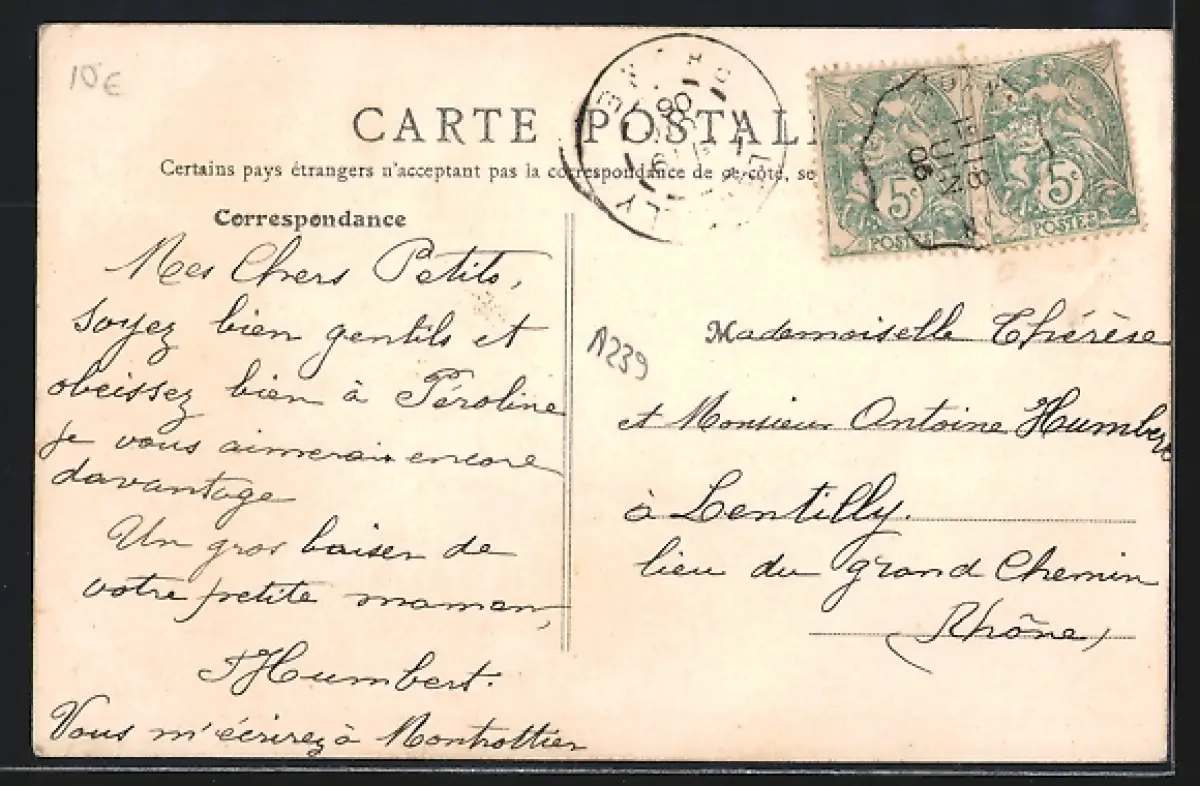 10€
CARTE POSTALE
Certains pays étrangers n'acceptant pas la correspondance de ce côté, se
Correspondance
Mes Chers Petits,
soyez bien gentils et
obeissez bien à Péroline
je vous aimerai encore
davantage
Un gros baiser de
votre petite maman,
Humbert.
Vous m'écrirez à Montrottier
5c
POSTES
5c
POSTES
A239
Mademoiselle Thérèse
et Monsieur Antoine Humbert
à Lentilly.
lieu du grand Chemin
(Rhône)